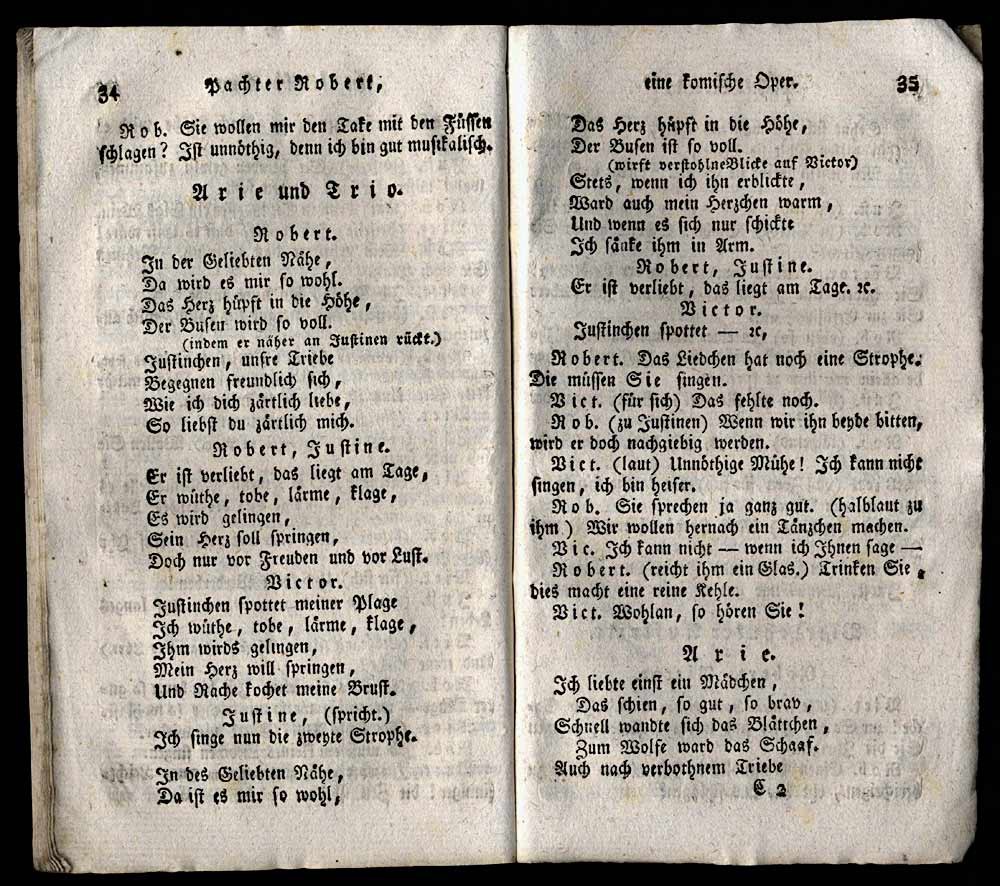 34 Pachter Robert,
Rob. Sie wollen mir den Takt mit den Füssen
schlagen? Ist unnöthig, denn ich bin gut musikalisch.
Arie und Trio.
Robert.
In der Geliebten Nähe,
Da wird es mir so wohl.
Das Herz hüpft in die Höhe,
Der Busen wird so voll.
(indem er näher an Justinen rückt.)
Justinchen, unsre Triebe
Begegnen freundlich sich,
Wie ich dich zärtlich liebe,
So liebst du zärtlich mich.
Robert, Justine.
Er ist verliebt, das liegt am Tage,
Er wüthe, tobe, lärme, klage,
Es wird gelingen,
Sein Herz soll springen,
Doch nur vor Freuden und vor Lust.
Victor.
Justinchen spottet meiner Plage
Ich wüthe, tobe, lärme, klage,
Ihm wirds gelingen,
Mein Herz will springen,
Und Rache kochet meine Brust.
Justine, (spricht.)
Ich singe nun die zweyte Strophe.
In des Geliebten Nähe,
Da ist es mir so wohl,
eine komische Oper. 35
Das Herz hüpft in die Höhe,
Der Busen ist so voll.
(wirft verstohlne Blicke auf Victor)
Stets, wenn ich ihn erblickte,
Ward auch mein Herzchen warm,
Und wenn es sich nur schickte
Ich sänke ihm in Arm.
Robert, Justine.
Er ist verliebt, das liegt am Tage. ꝛc.
Victor.
Justinchen spottet — ꝛc,
Robert. Das Liedchen hat noch eine Strophe.
Die müssen Sie singen.
Vict. (für sich) Das fehlte noch.
Rob. (zu Justinen) Wenn wir ihn beyde bitten,
wird er doch nachgiebig werden.
Vict. (laut) Unnöthige Mühe! Ich kann nicht
singen, ich bin heiser.
Rob. Sie sprechen ja ganz gut. (halblaut zu
ihm) Wir wollen hernach ein Tänzchen machen.
Vic. Ich kann nicht — wenn ich Ihnen sage —
Robert. (reicht ihm ein Glas.) Trinken Sie,
dies macht eine reine Kehle.
Vict. Wohlan, so hören Sie!
Arie.
Ich liebte einst ein Mädchen,
Das schien, so gut, so brav,
Schnell wandte sich das Blättchen,
Zum Wolfe ward das Schaaf.
Auch nach verbothnem Triebe
C 2